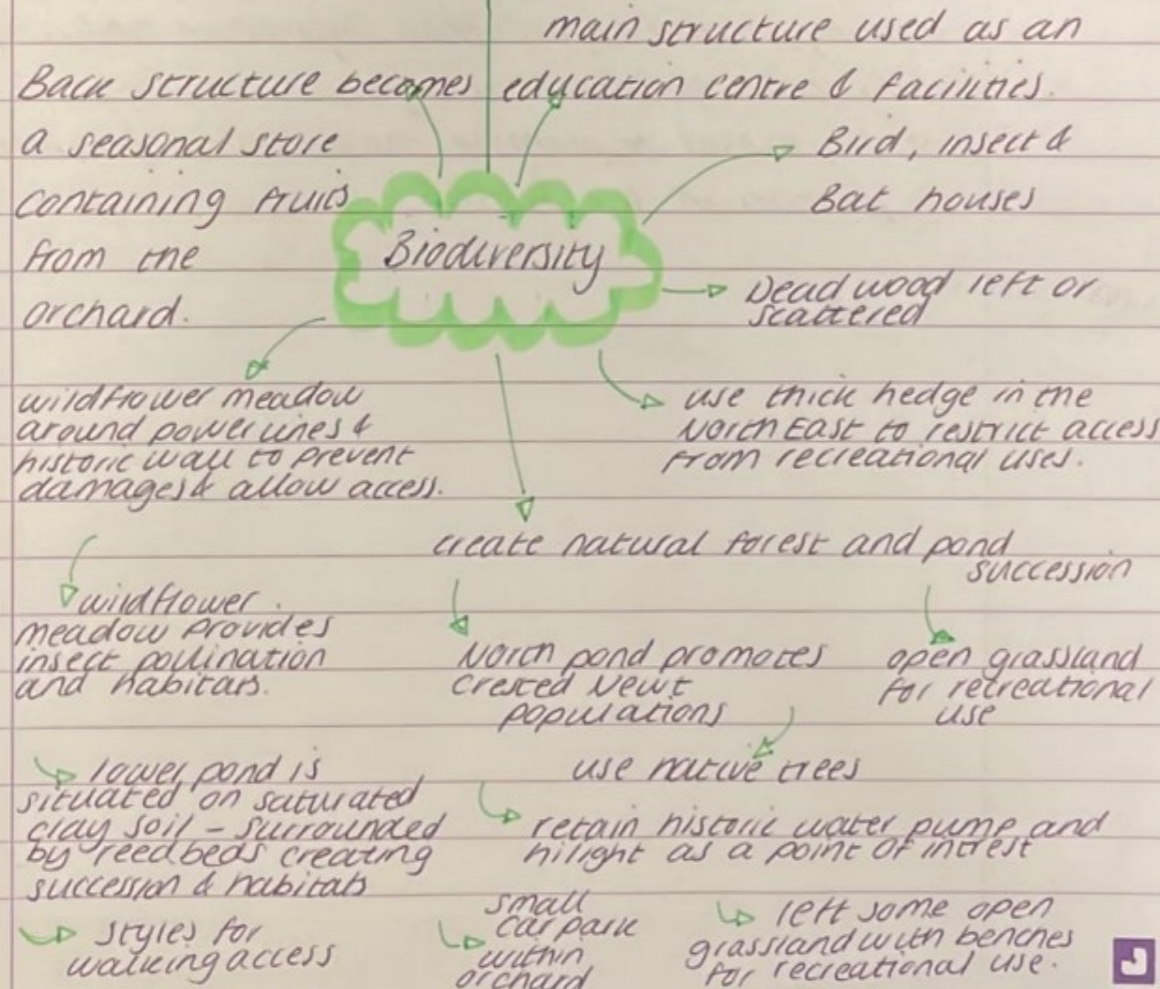 main structure used as an
education centre & facilities.
Back structure becomes
a seasonal store
containing fruits
from the
orchard.
Biodiversity
Bird, insect &
Bat houses
Dead wood left or
scattered
use thick hedge in the
North East to restrict access
from recreational uses.
wildflower meadow
around powerlines &
historic wall to prevent
damages & allow access.
create natural forest and pond
succession
wildflower
meadow provides
insect pollination
and habitats.
North pond promotes
Crested Newt
populations
open grassland
for retreational
use
use native trees
lower pond is
situated on saturated
clay soil - surrounded
by reedbeds creating
succession & habitats
retain historic water pump and
hilight as a point of intrest
styles for
walking access
small
car park
within
orchard
left some open
grassland with benches
for recreational use.